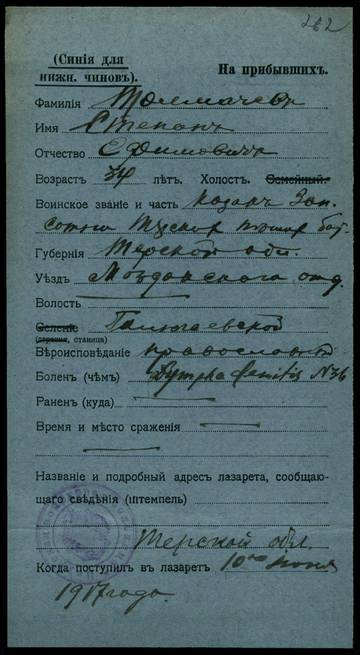 262
(Синія для
нижн. чиновъ).
На прибывшихъ.
Фамилія Толмачевъ
Имя Степанъ
Отчество Ефимовичъ
Возрастъ 34 лѣтъ. Холост. Семейный.
Воинское званіе и часть казакъ Зап.
сотни
Губернія Терской обл.
Уѣздъ Моздокскаго отд.
Волость
Селеніе Галюгаевской
(деревня, станица)
Вѣроисповѣданіе православн
Боленъ (чѣмъ) Lymphadenitis N36
Раненъ (куда)
Время и мѣсто сраженія
Названіе и подробный адресъ лазарета, сообщаю-
щаго свѣдѣнія (штемпель)
Терской обл.
Когда поступилъ въ лазаретъ 10го
1917 года.